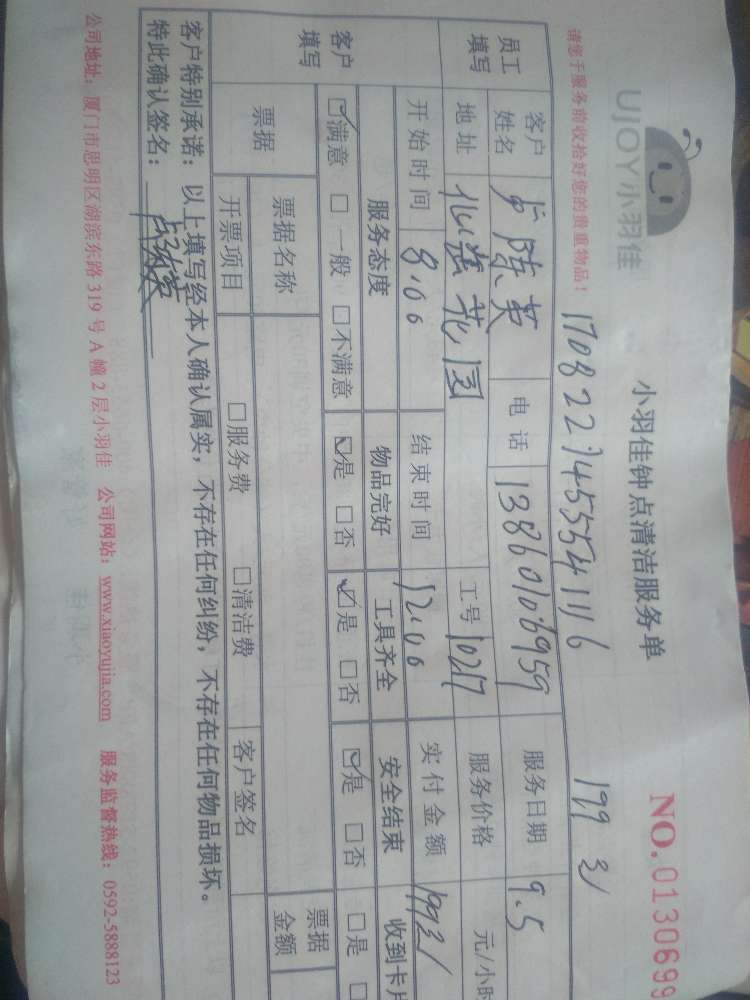 UJOY小羽佳
小羽佳钟点清洁服务单
NO.0130699
请您于服务前收拾好您的贵重物品!
17082274555541116
199 31
员工填写
客户姓名
陈英
电话
13860106959
服务日期
9.5
地址
花园
工号
10217
服务价格
元/小时
开始时间
8:00
结束时间
12:00
实付金额
199 31
客户填写
服务态度
物品完好
工具齐全
安全结束
收到卡片
☑满意 □一般 □不满意
☑是 □否
☑是 □否
☑是 □否
□是
票据
票据名称
票据金额
开票项目
□服务费 □清洁费
客户签名
客户特别承诺:以上填写经本人确认属实,不存在任何纠纷,不存在任何物品损坏。
特此确认签名:
公司地址:厦门市思明区湖滨东路319号A幢2层小羽佳 公司网站:www.xiaoyujia.com 服务监督热线:0592-5888123